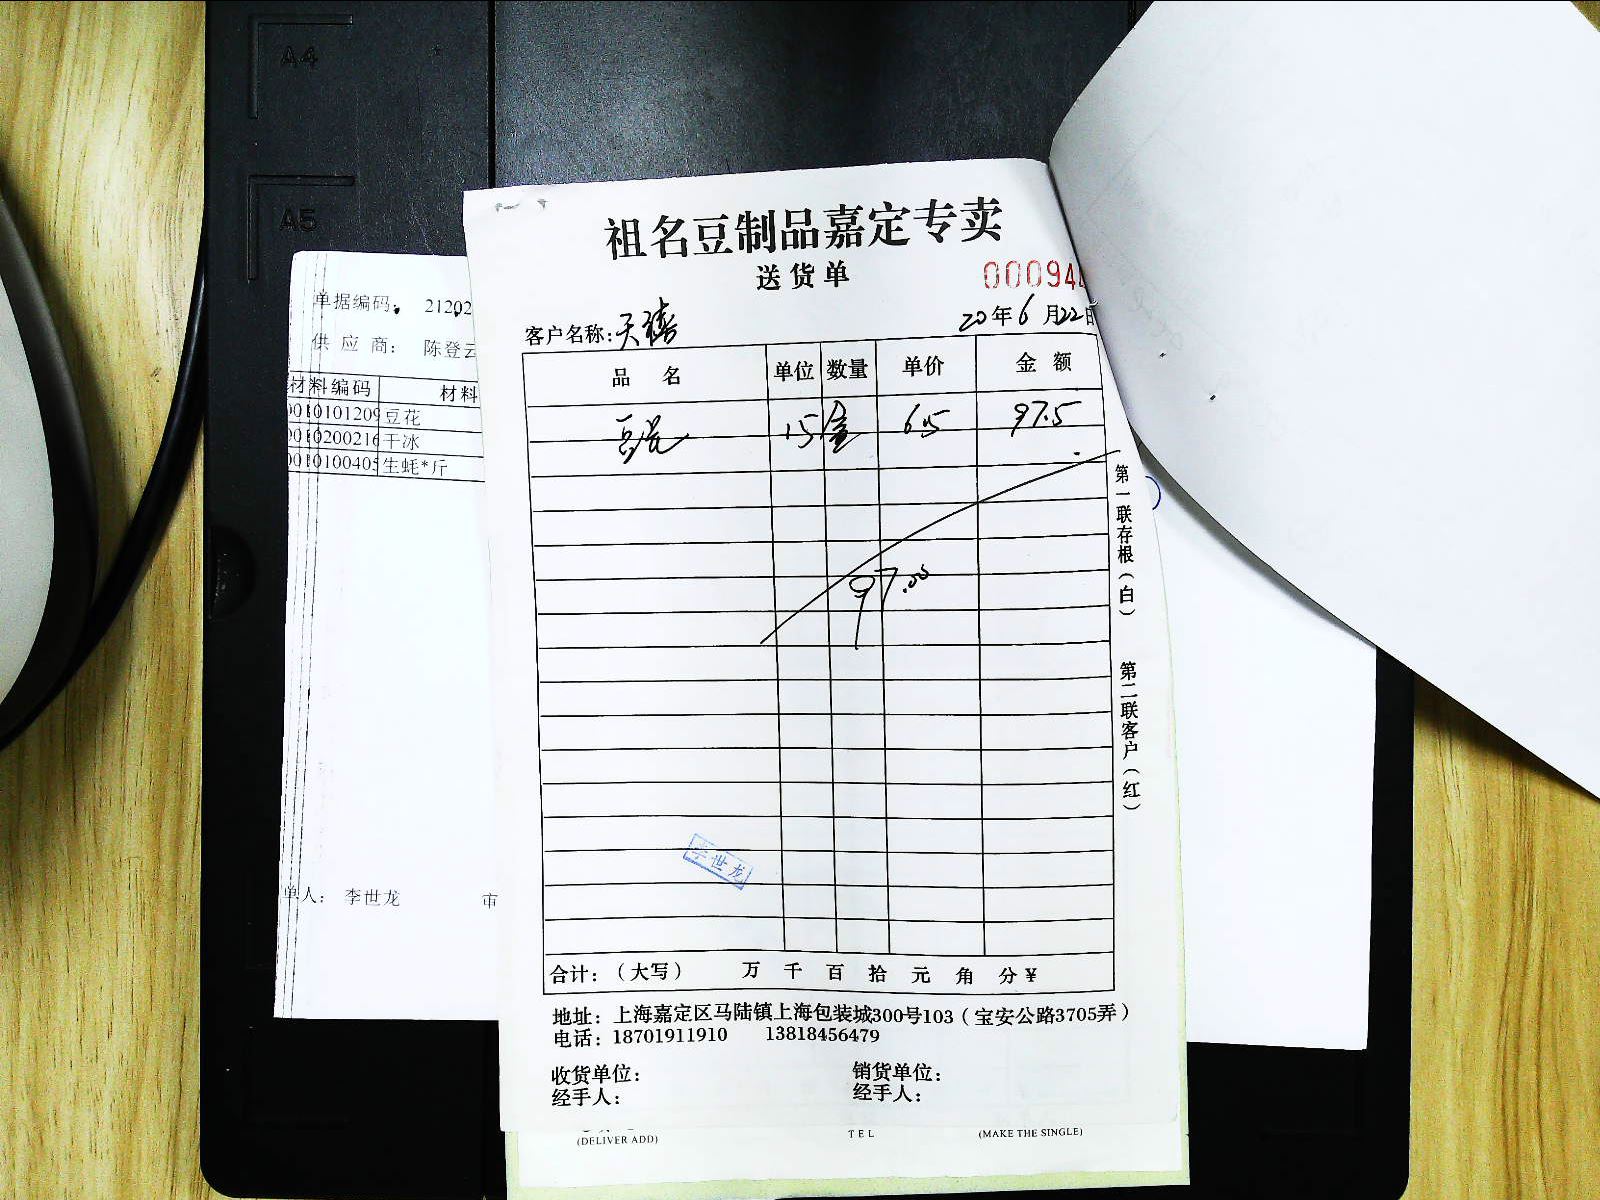 A4
A5
单据编码： 21202
供 应 商： 陈登云
材料编码 材料
0010101209 豆花
0010200216 干冰
0010100405 生蚝*斤
单人： 李世龙 审
祖名豆制品嘉定专卖
送货单
000944
客户名称：天禧 20年6月22日
品 名 单位 数量 单价 金 额
豆花 15 盒 6.5 97.5
97.00
第一联存根（白）
第二联客户（红）
李世龙
合计：（大写） 万 千 百 拾 元 角 分￥
地址：上海嘉定区马陆镇上海包装城300号103（宝安公路3705弄）
电话：18701911910 13818456479
收货单位： 销货单位：
经手人： 经手人：
(DELIVER ADD) TEL (MAKE THE SINGLE)